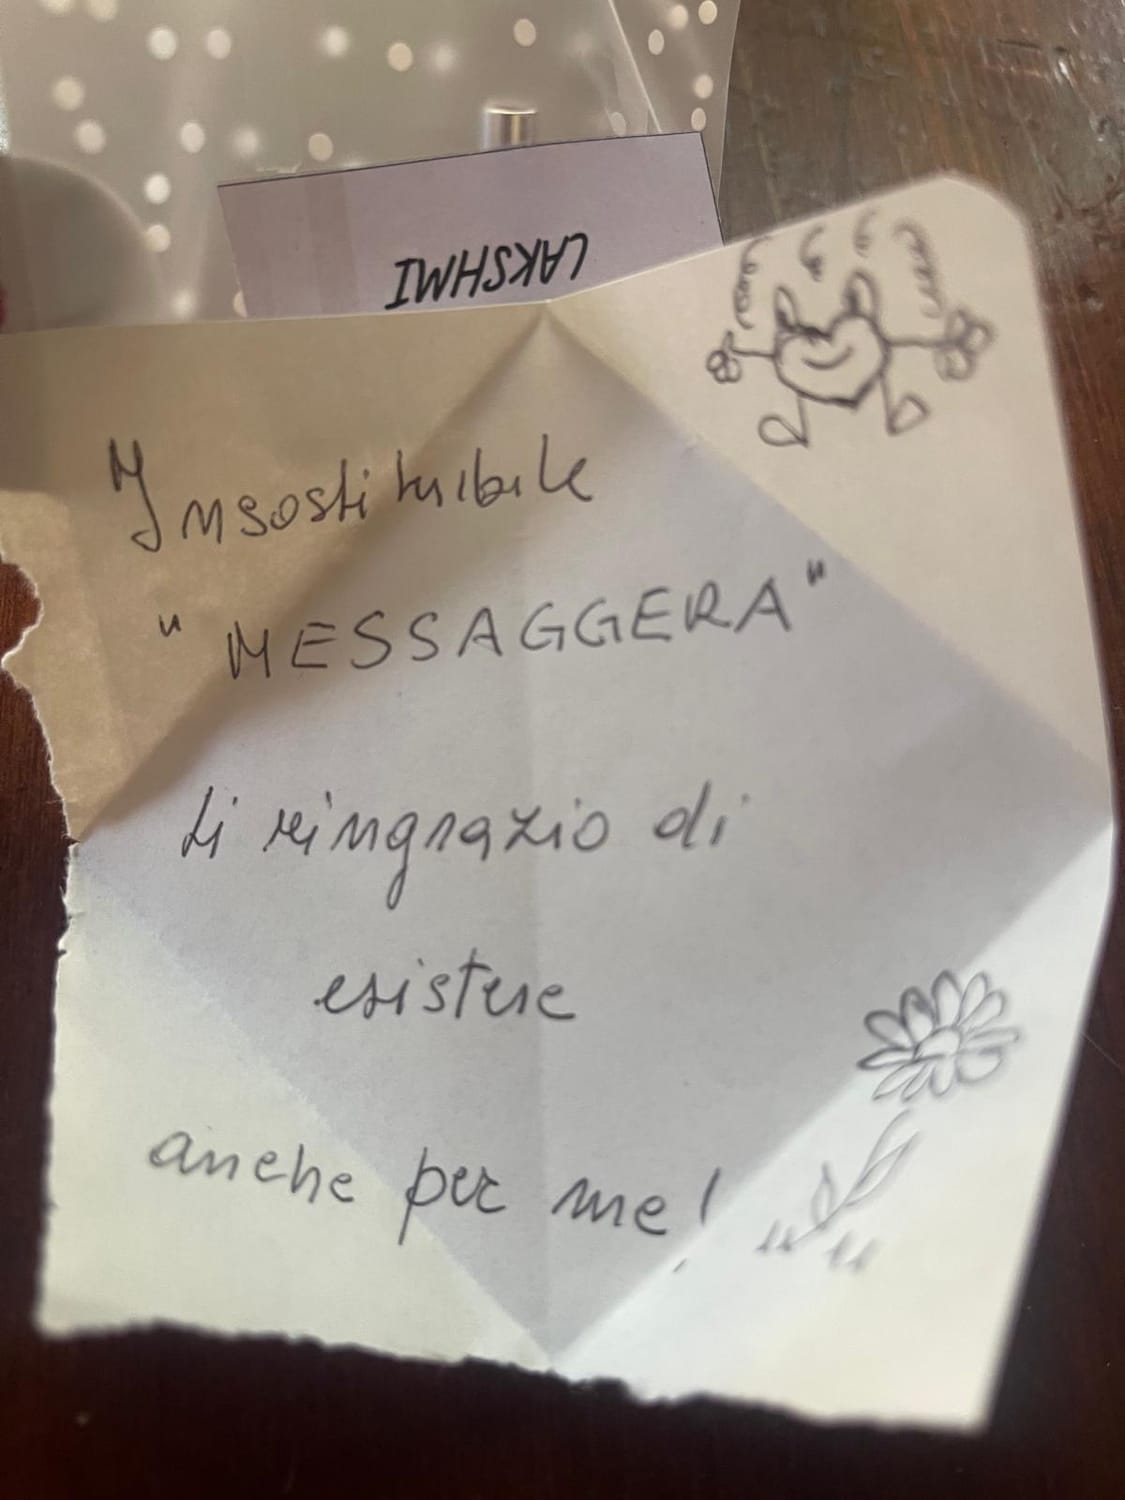 LAKSHMI
Insostituibile
"MESSAGGERA"
ti ringrazio di
esistere
anche per me!